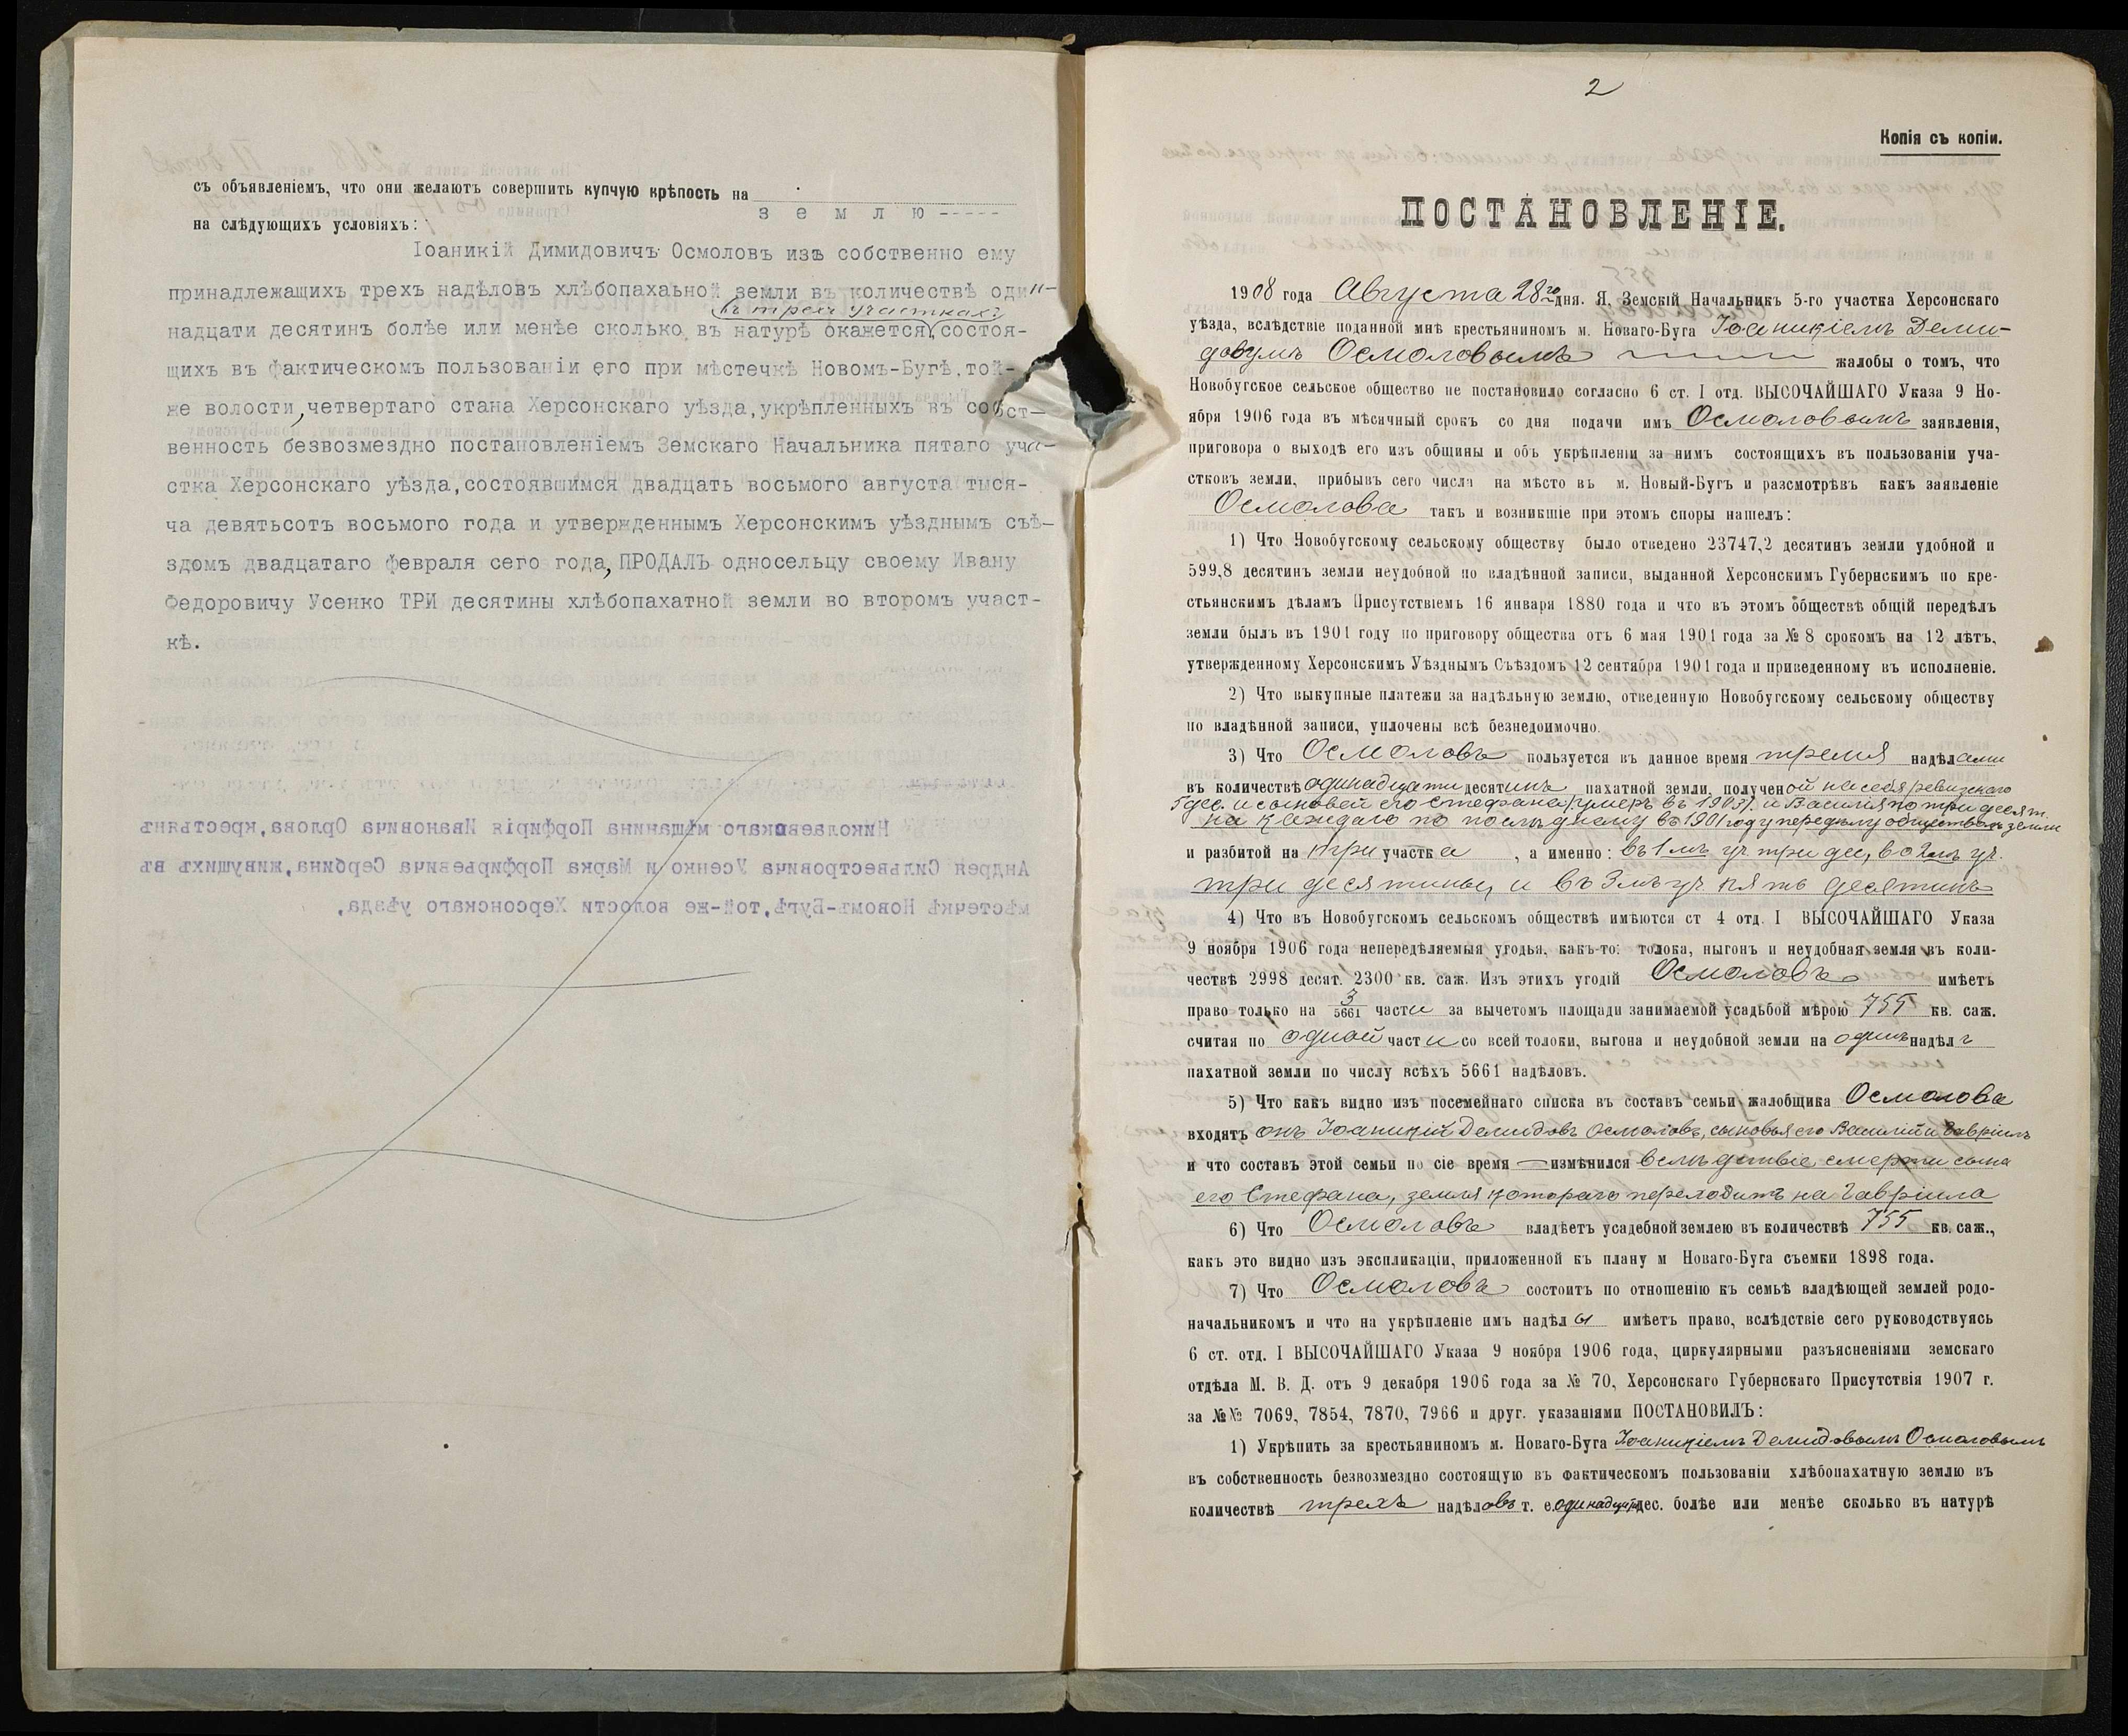 съ объявленіемъ, что они желаютъ совершить купчую крѣпость на
з е м л ю -----
на слѣдующихъ условіяхъ:
Іоаникій Димидовичъ Осмоловъ изъ собственно ему
принадлежащихъ трехъ надѣловъ хлѣбопахаьной земли въ количествѣ один-
въ трехъ участкахъ
надцати десятинъ болѣе или менѣе сколько въ натурѣ окажется, состоя-
щихъ въ фактическомъ пользованіи его при мѣстечкѣ Новомъ-Бугѣ, той-
же волости, четвертаго стана Херсонскаго уѣзда, укрѣпленныхъ въ собст-
венность безвозмездно постановленіемъ Земскаго Начальника пятаго уча-
стка Херсонскаго уѣзда, состоявшимся двадцать восьмого августа тыся-
ча девятьсотъ восьмого года и утвержденнымъ Херсонскимъ уѣзднымъ съѣ-
здомъ двадцатаго февраля сего года, ПРОДАЛЪ односельцу своему Ивану
Федоровичу Усенко ТРИ десятины хлѣбопахатной земли во второмъ участ-
кѣ.
Николаевскаго мѣщанина Порфирія Ивановича Орлова, крестьянъ
Андрея Сильвестровича Усенко и Марка Порфирьевича Сербина, живущихъ въ
мѣстечкѣ Новомъ-Бугѣ, той-же волости Херсонскаго уѣзда,
2
Копія съ копіи.
ПОСТАНОВЛЕНІЕ.
1908 года Августа 28го дня. Я, Земскій Начальникъ 5-го участка Херсонскаго
уѣзда, вслѣдствіе поданной мнѣ крестьяниномъ м. Новаго-Буга Іоаникіемъ Деми-
довымъ Осмоловымъ жалобы о томъ, что
Новобугское сельское общество не постановило согласно 6 ст. I отд. ВЫСОЧАЙШАГО Указа 9 Но-
ября 1906 года въ мѣсячный срокъ со дня подачи имъ Осмоловымъ заявленія,
приговора о выходѣ его изъ общины и объ укрѣпленіи за нимъ состоящихъ въ пользованіи уча-
стковъ земли, прибывъ сего числа на мѣсто въ м. Новый-Бугъ и разсмотрѣвъ какъ заявленіе
Осмолова такъ и возникшіе при этомъ споры нашелъ:
1) Что Новобугскому сельскому обществу было отведено 23747,2 десятинъ земли удобной и
599,8 десятинъ земли неудобной по владѣнной записи, выданной Херсонскимъ Губернскимъ по кре-
стьянскимъ дѣламъ Присутствіемъ 16 января 1880 года и что въ этомъ обществѣ общій передѣлъ
земли былъ въ 1901 году по приговору общества отъ 6 мая 1901 года за № 8 срокомъ на 12 лѣтъ,
утвержденному Херсонскимъ Уѣзднымъ Съѣздомъ 12 сентября 1901 года и приведенному въ исполненіе.
2) Что выкупные платежи за надѣльную землю, отведенную Новобугскому сельскому обществу
по владѣнной записи, уплочены всѣ безнедоимочно.
3) Что Осмоловъ пользуется въ данное время тремя надѣлами
въ количествѣ одинадцати десятинъ пахатной земли, полученой на себя ревизскаго
5 дес. и сыновей его Стефана (умеръ въ 1903 г.) и Василія по три десят.
на каждаго по послѣднему въ 1901 году передѣлу обществомъ земли
и разбитой на три участка , а именно: въ 1мъ уч. три дес, во 2мъ уч.
три десятины, и въ 3мъ уч. пять десятинъ
4) Что въ Новобугскомъ сельскомъ обществѣ имѣются ст 4 отд. I ВЫСОЧАЙШАГО Указа
9 ноября 1906 года непередѣляемыя угодья, какъ-то: толока, выгонъ и неудобная земля въ коли-
чествѣ 2998 десят. 2300 кв. саж. Изъ этихъ угодій Осмоловъ имѣетъ
право только на 3/5661 части за вычетомъ площади занимаемой усадьбой мѣрою 755 кв. саж.
считая по одной части со всей толоки, выгона и неудобной земли на одинъ надѣлъ
пахатной земли по числу всѣхъ 5661 надѣловъ.
5) Что какъ видно изъ посемейнаго списка въ составъ семьи жалобщика Осмолова
входятъ онъ Іоаникій Демидовъ Осмоловъ, сыновья его Василій и Гавріилъ
и что составъ этой семьи по сіе время — измѣнился вслѣдствіе смерти сына
его Стефана, земля котораго переходитъ на Гавріила
6) Что Осмоловъ владѣетъ усадебной землею въ количествѣ 755 кв. саж.,
какъ это видно изъ экспликаціи, приложенной къ плану м Новаго-Буга съемки 1898 года.
7) Что Осмоловъ состоитъ по отношенію къ семьѣ владѣющей землей родо-
начальникомъ и что на укрѣпленіе имъ надѣлы имѣетъ право, вслѣдствіе сего руководствуясь
6 ст. отд. I ВЫСОЧАЙШАГО Указа 9 ноября 1906 года, циркулярными разъясненіями земскаго
отдѣла М. В. Д. отъ 9 декабря 1906 года за № 70, Херсонскаго Губернскаго Присутствія 1907 г.
за №№ 7069, 7854, 7870, 7966 и друг. указаніями ПОСТАНОВИЛЪ:
1) Укрѣпить за крестьяниномъ м. Новаго-Буга Іоаникіемъ Демидовымъ Осмоловымъ
въ собственность безвозмездно состоящую въ фактическомъ пользованіи хлѣбопахатную землю въ
количествѣ трехъ надѣловъ т. е. одинадцать дес. болѣе или менѣе сколько въ натурѣ